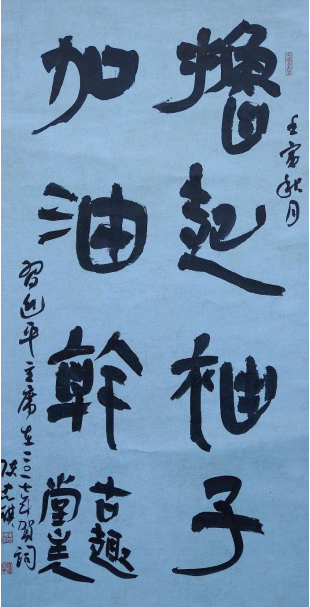 壬寅秋月
擼起袖子
加油幹
古趣
堂主人
習近平主席在二〇一七年賀詞